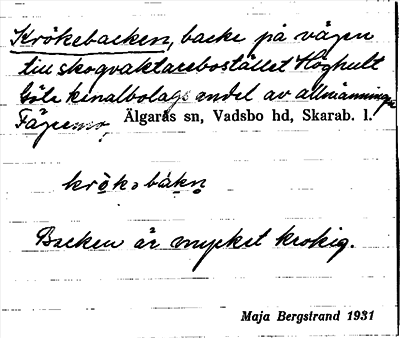 Krökebacken, backe på vägen
till skogvaktarebostället Höghult
Göta kanalbolags andel av allmänningen
Älgarås sn, Vadsbo hd, Skarab. l.
backen är mycket krokig.
Maja Bergstrand 1931